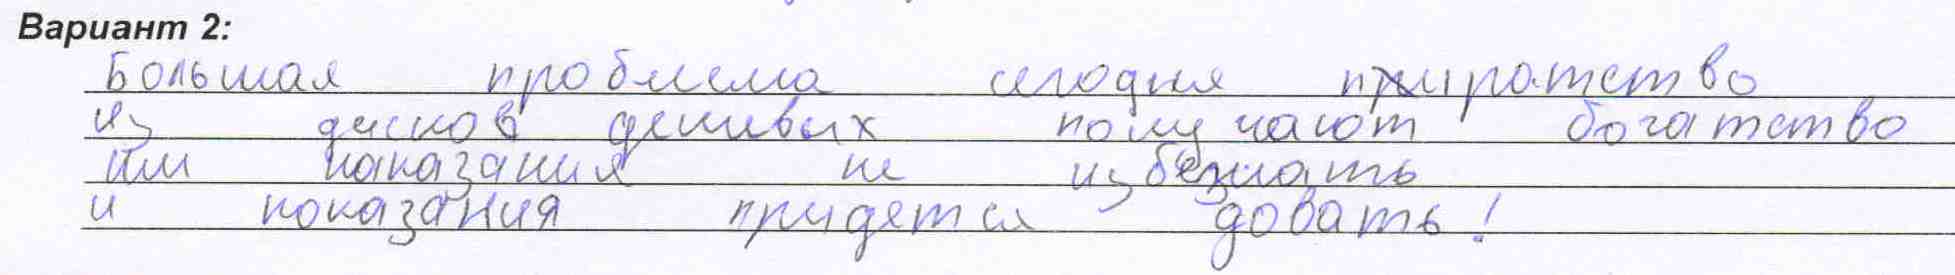 Вариант 2:
Большая проблема сегодня пиратство
из дисков дешивых получают богатство
им наказания не избежать
и показания придется довать!